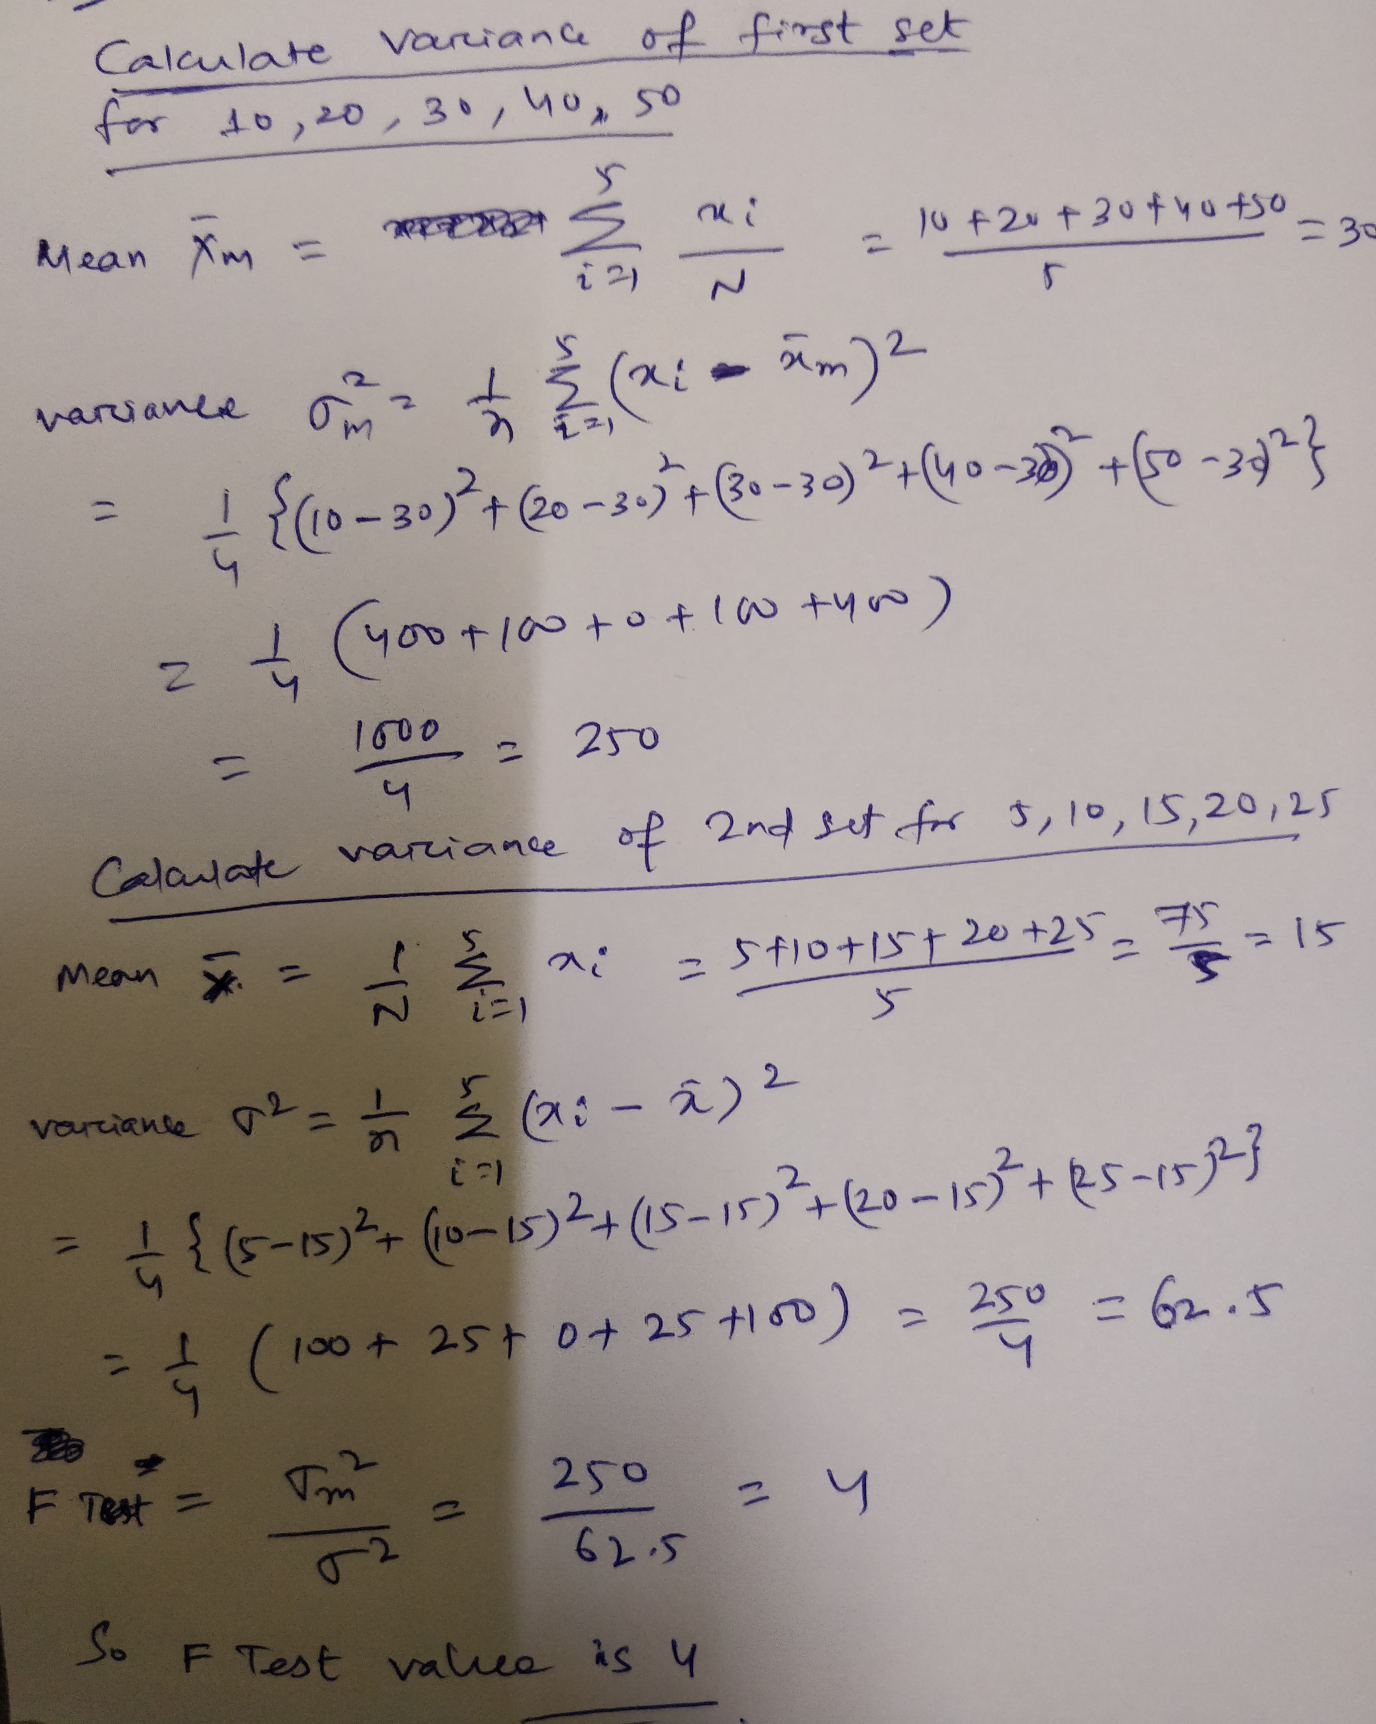 Calculate variance of first set
for 10, 20, 30, 40, 50
Mean x̄m = 5 Σ i=1 xi/N = (10+20+30+40+50)/5 = 30
variance σm² = 1/n 5 Σ i=1 (xi - x̄m)²
= 1/4 {(10-30)²+(20-30)²+(30-30)²+(40-30)²+(50-30)²}
= 1/4 (400+100+0+100+400)
= 1000/4 = 250
Calculate variance of 2nd set for 5, 10, 15, 20, 25
Mean x̄ = 1/N 5 Σ i=1 xi = (5+10+15+20+25)/5 = 75/5 = 15
variance σ² = 1/n 5 Σ i=1 (xi - x̄)²
= 1/4 {(5-15)²+(10-15)²+(15-15)²+(20-15)²+(25-15)²}
= 1/4 (100+25+0+25+100) = 250/4 = 62.5
F Test = σm²/σ² = 250/62.5 = 4
So F Test value is 4